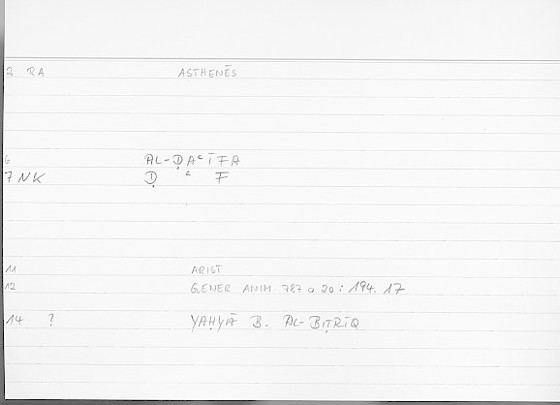 2 RA ASTHENĒS
6 AL-ḌAʿĪFA
7 NK Ḍ ʿ F
11 ARIST
12 GENER ANIM 787 a 20: 194.17
14 ? YAḤYĀ B. AL-BIṬRĪQ